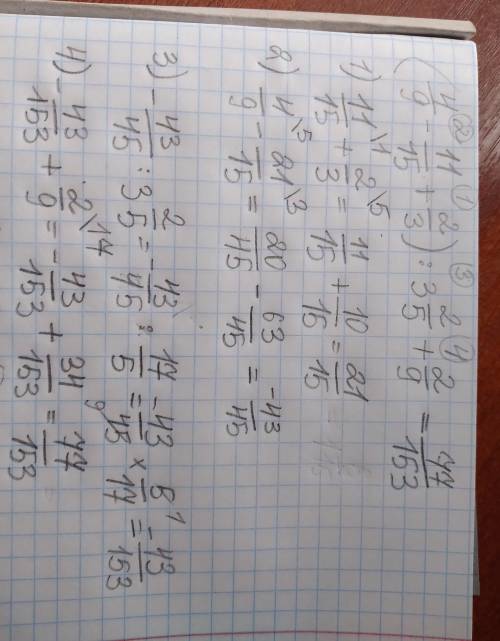 (4/9 ② - 11/15 ① + 2/3) : ③ 3 2/5 ④ + 2/9 = 77/153
1) 11/15 \1 + 2/3 \5 = 11/15 + 10/15 = 21/15
2) 4/9 \5 - 21/15 \3 = 20/45 - 63/45 = -43/45
3) -43/45 : 3 2/5 = -43/45 : 17/5 = -43/45 9 × 5/17 1 = -43/153
4) -43/153 + 2/9 \17 = -43/153 + 34/153 = 77/153